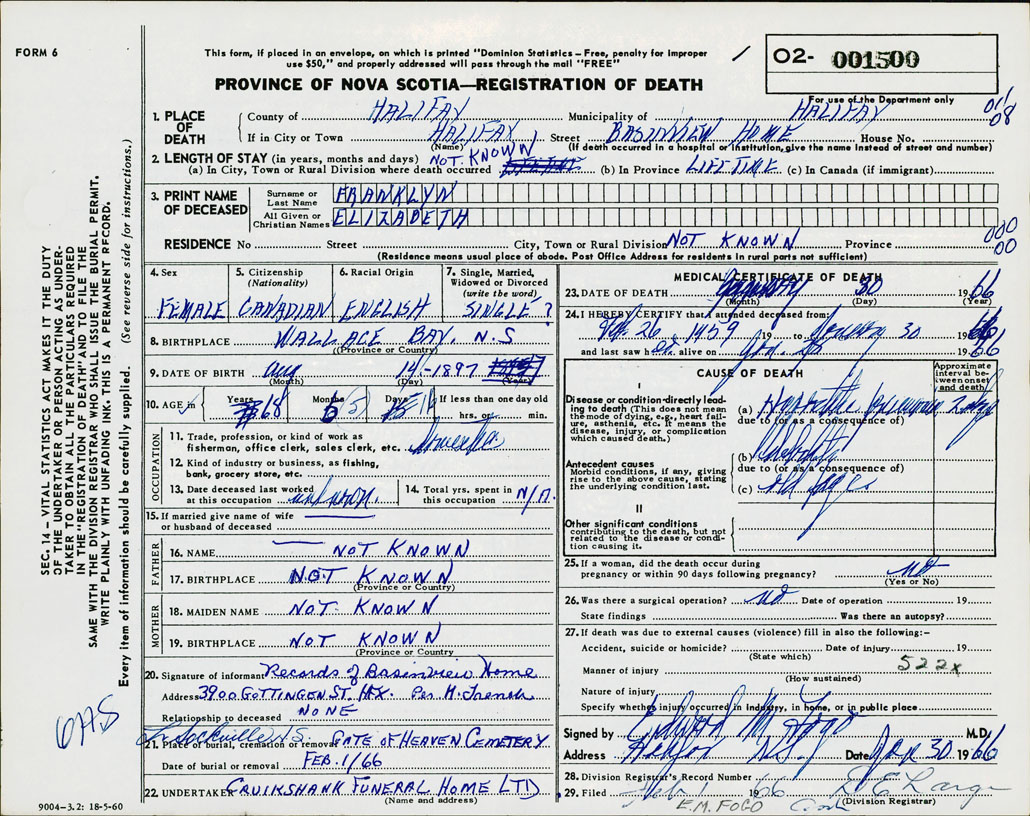 FORM 6
This form, if placed in an envelope, on which is printed "Dominion Statistics – Free, penalty for improper
use $50," and properly addressed will pass through the mail "FREE"
02- 001500
PROVINCE OF NOVA SCOTIA—REGISTRATION OF DEATH
For use of the Department only
1. PLACE OF DEATH
County of HALIFAX Municipality of HALIFAX
If in City or Town HALIFAX Street BASINVIEW HOME House No.
(Name) (If death occurred in a hospital or institution, give the name instead of street and number)
08
2. LENGTH OF STAY (in years, months and days) NOT KNOWN
(a) In City, Town or Rural Division where death occurred (b) In Province LIFE TIME (c) In Canada (if immigrant)
3. PRINT NAME OF DECEASED
Surname or Last Name FRANKLYN
All Given or Christian Names ELIZABETH
RESIDENCE No Street City, Town or Rural Division NOT KNOWN Province
000
00
(Residence means usual place of abode. Post Office Address for residents in rural parts not sufficient)
4. Sex
FEMALE
5. Citizenship (Nationality)
CANADIAN
6. Racial Origin
ENGLISH
7. Single, Married, Widowed or Divorced (write the word)
SINGLE ?
8. BIRTHPLACE WALLACE BAY, N.S
(Province or Country)
9. DATE OF BIRTH Aug 14 - 1897
(Month) (Day) (Year)
10. AGE in Years 68 Months 5 Days 16 If less than one day old
hrs. or min.
OCCUPATION
11. Trade, profession, or kind of work as
fisherman, office clerk, sales clerk, etc. Domestic
12. Kind of industry or business, as fishing,
bank, grocery store, etc.
13. Date deceased last worked
at this occupation unknown.
14. Total yrs. spent in
this occupation N/A.
15. If married give name of wife
or husband of deceased
FATHER
16. NAME NOT KNOWN
17. BIRTHPLACE NOT KNOWN
(Province or Country)
MOTHER
18. MAIDEN NAME NOT KNOWN
19. BIRTHPLACE NOT KNOWN
(Province or Country)
20. Signature of informant Records of Basinview Home
Address 3900 GOTTINGEN ST. HFX. Per M. French
Relationship to deceased NONE
Sackville N.S.
21. Place of burial, cremation or removal GATE OF HEAVEN CEMETERY
Date of burial or removal FEB. 1/66
22. UNDERTAKER CRUIKSHANK FUNERAL HOME LTD
(Name and address)
MEDICAL CERTIFICATE OF DEATH
23. DATE OF DEATH January 30 1966
(Month) (Day) (Year)
24. I HEREBY CERTIFY that I attended deceased from:
Feb. 26 1959 19 to January 30 1966
and last saw her alive on Jan. 1966
CAUSE OF DEATH
Approximate interval between onset and death
I
Disease or condition directly leading to death (This does not mean the mode of dying, e.g., heart failure, asthenia, etc. It means the disease, injury, or complication which caused death.)
(a) Hypostatic pneumonia
due to (or as a consequence of)
Antecedent causes
Morbid conditions, if any, giving rise to the above cause, stating the underlying condition last.
(b)
due to (or as a consequence of)
(c)
II
Other significant conditions contributing to the death, but not related to the disease or condition causing it.
25. If a woman, did the death occur during
pregnancy or within 90 days following pregnancy? no
(Yes or No)
26. Was there a surgical operation? no Date of operation 19
State findings Was there an autopsy?
27. If death was due to external causes (violence) fill in also the following:–
Accident, suicide or homicide? Date of injury 19
(State which)
522x
Manner of injury
(How sustained)
Nature of injury
Specify whether injury occurred in industry, in home, or in public place
Signed by Edward M. Fogo M.D.
Address Halifax N.S. Date Jan 30 1966
28. Division Registrar's Record Number
29. Filed Feb 1 1966
(Division Registrar)
E.M. FOGO
SEC. 14 – VITAL STATISTICS ACT MAKES IT THE DUTY
OF THE UNDERTAKER OR PERSON ACTING AS UNDERTAKER TO OBTAIN ALL THE PARTICULARS REQUIRED
IN THE "REGISTRATION OF DEATH" AND TO FILE THE
SAME WITH THE DIVISION REGISTRAR WHO SHALL ISSUE THE BURIAL PERMIT.
WRITE PLAINLY WITH UNFADING INK. THIS IS A PERMANENT RECORD.
Every item of information should be carefully supplied. (See reverse side for instructions.)
9004–3.2: 18-5-60